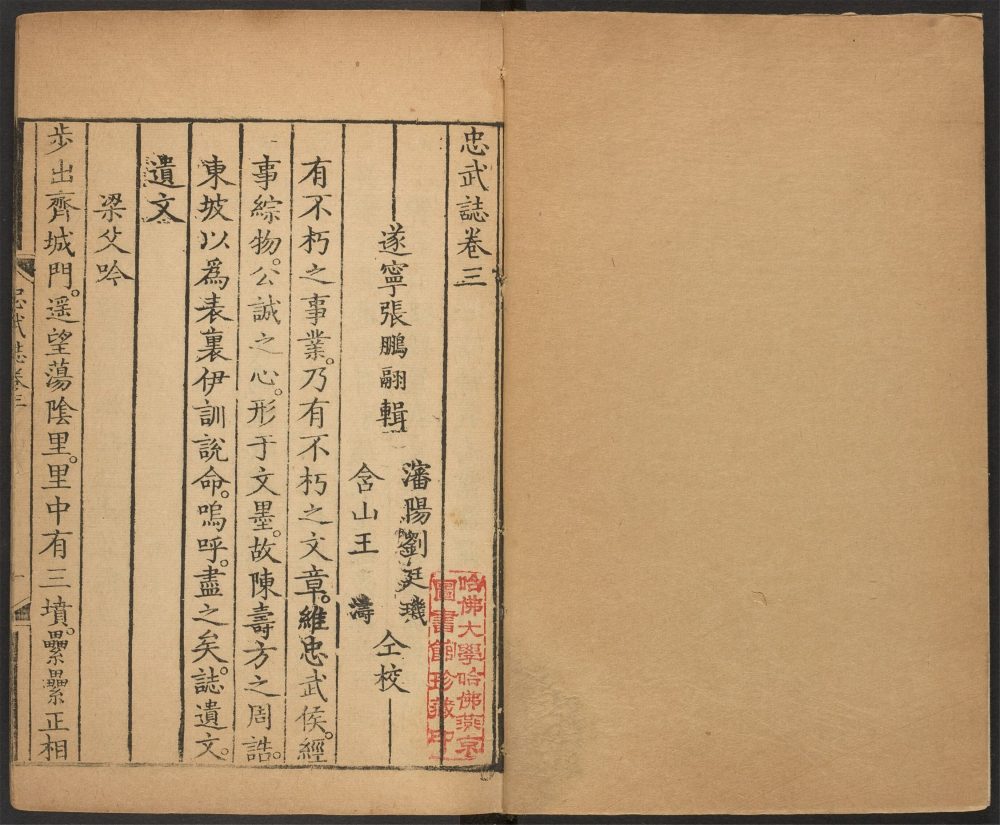 忠武誌卷三
遂寧張鵬翮輯
瀋陽劉廷璣
含山王 濤
仝校
有不朽之事業。乃有不朽之文章。維忠武侯。經
事綜物。公誠之心。形于文墨。故陳壽方之周誥。
東坡以爲表裏伊訓說命。嗚呼。盡之矣。誌遺文。
遺文
梁父吟
步出齊城門。遥望蕩陰里。里中有三墳。纍纍正相
忠武誌卷三
一
哈佛大學哈佛燕京
圖書館珍藏印